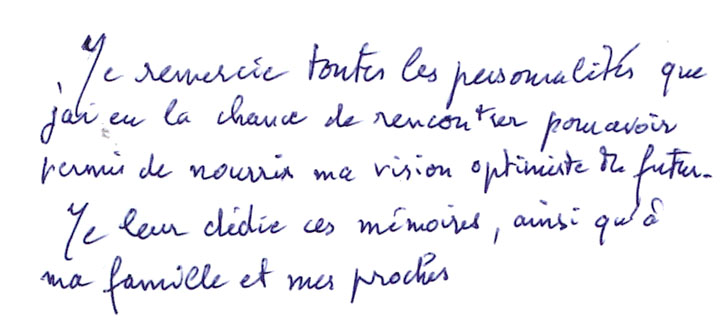 Je remercie toutes les personnalités que
j'ai eu la chance de rencontrer pour avoir
permis de nourrir ma vision optimiste du futur.
Je leur dédie ces mémoires, ainsi qu'à
ma famille et mes proches